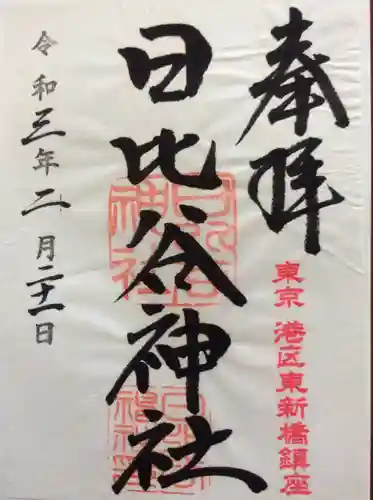 奉拝
東京 港区東新橋鎮座
日比谷神社
令和三年二月二十一日